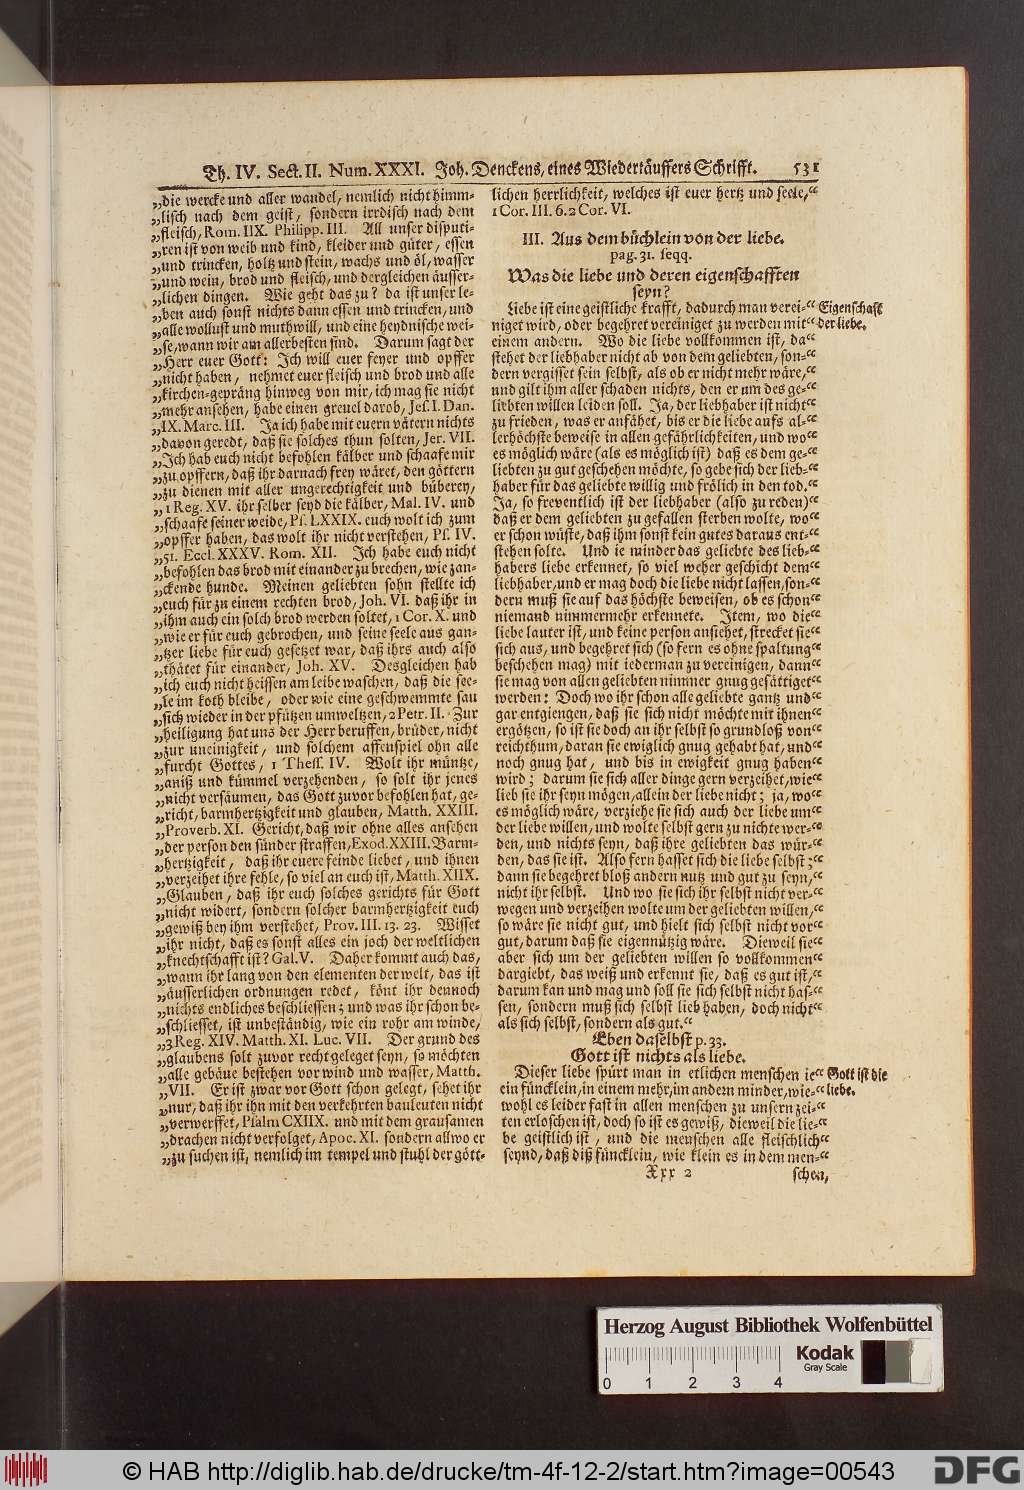 Th. IV. Sect. II. Num. XXXI. Joh. Denckens, eines Wiedertäuffers Schrifft. 531
„die wercke und aller wandel, nemlich nicht himm-
„lisch nach dem geist, sondern irrdisch nach dem
„fleisch, Rom. IIX. Philipp. III. All unser disputi-
„ren ist von weib und kind, kleider und güter, essen
„und trincken, holtz und stein, wachs und öl, wasser
„und wein, brod und fleisch, und dergleichen äusser-
„lichen dingen. Wie geht das zu? da ist unser le-
„ben auch sonst nichts dann essen und trincken, und
„alle wollust und muthwill, und eine heydnische wei-
„se, wann wir am allerbesten sind. Darum sagt der
„Herr euer Gott: Ich will euer feyer und opffer
„nicht haben, nehmet euer fleisch und brod und alle
„kirchen-gepräng hinweg von mir, ich mag sie nicht
„mehr ansehen, habe einen greuel darob, Jes. I. Dan.
„IX. Marc. III. Ja ich habe mit euern vätern nichts
„davon geredt, daß sie solches thun solten, Jer. VII.
„Ich hab euch nicht befohlen kälber und schaafe mir
„zu opffern, daß ihr darnach frey wäret, den göttern
„zu dienen mit aller ungerechtigkeit und büberey,
„1 Reg. XV. ihr selber seyd die kälber, Mal. IV. und
„schaafe seiner weide, Ps. LXXIX. euch wolt ich zum
„opffer haben, das wolt ihr nicht verstehen, Ps. IV.
„51. Eccl. XXXV. Rom. XII. Ich habe euch nicht
„befohlen das brod mit einander zu brechen, wie zan-
„ckende hunde. Meinen geliebten sohn stellte ich
„euch für zu einem rechten brod, Joh. VI. daß ihr in
„ihm auch ein solch brod werden soltet, 1 Cor. X. und
„wie er für euch gebrochen, und seine seele aus gan-
„tzer liebe für euch gesetzet war, daß ihrs auch also
„thätet für einander, Joh. XV. Desgleichen hab
„ich euch nicht heissen am leibe waschen, daß die see-
„le im koth bleibe, oder wie eine geschwemmte sau
„sich wieder in der pfützen umweltzen, 2 Petr. II. Zur
„heiligung hat uns der Herr beruffen, brüder, nicht
„zur uneinigkeit, und solchem affenspiel ohn alle
„furcht Gottes, 1 Thess. IV. Wolt ihr müntze,
„aniß und kümmel verzehenden, so solt ihr jenes
„nicht versäumen, das Gott zuvor befohlen hat, ge-
„richt, barmhertzigkeit und glauben, Matth. XXIII.
„Proverb. XI. Gericht, daß wir ohne alles ansehen
„der person den sünder straffen, Exod. XXIII. Barm-
„hertzigkeit, daß ihr euere feinde liebet, und ihnen
„verzeihet ihre fehle, so viel an euch ist, Matth. XIIX.
„Glauben, daß ihr euch solches gerichts für Gott
„nicht widert, sondern solcher barmhertzigkeit euch
„gewiß bey ihm verstehet, Prov. III. 13. 23. Wisset
„ihr nicht, daß es sonst alles ein joch der weltlichen
„knechtschafft ist? Gal. V. Daher komt auch das,
„wann ihr lang von den elementen der welt, das ist
„äusserlichen ordnungen redet, könt ihr dennoch
„nichts endliches beschliessen; und was ihr schon be-
„schliesset, ist unbeständig, wie ein rohr am winde,
„3 Reg. XIV. Matth. XI. Luc. VII. Der grund des
„glaubens solt zuvor recht geleget seyn, so möchten
„alle gebäue bestehen vor wind und wasser, Matth.
„VII. Er ist zwar vor Gott schon gelegt, sehet ihr
„nur, daß ihr ihn mit den verkehrten bauleuten nicht
„verwerffet, Psalm CXIIX. und mit dem grausamen
„drachen nicht verfolget, Apoc. XI. sondern allwo er
„zu suchen ist, nemlich im tempel und stuhl der gött-
lichen herrlichkeit, welches ist euer hertz und seele,“
1 Cor. III. 6. 2 Cor. VI.
III. Aus dem büchlein von der liebe.
pag. 31. seqq.
Was die liebe und deren eigenschafften
seyn?
Liebe ist eine geistliche krafft, dadurch man verei-“
niget wird, oder begehret vereiniget zu werden mit“
einem andern. Wo die liebe vollkommen ist, da“
stehet der liebhaber nicht ab von dem geliebten, son-“
dern vergisset sein selbst, als ob er nicht mehr wäre,“
und gilt ihm aller schaden nichts, den er um des ge-“
liebten willen leiden soll. Ja, der liebhaber ist nicht“
zu frieden, was er anfähet, bis er die liebe aufs al-“
lerhöchste beweise in allen gefährlichkeiten, und wo“
es möglich wäre (als es möglich ist) daß es dem ge-“
liebten zu gut geschehen möchte, so gebe sich der lieb-“
haber für das geliebte willig und frölich in den tod.“
Ja, so freventlich ist der liebhaber (also zu reden)“
daß er dem geliebten zu gefallen sterben wolte, wo“
er schon wüste, daß ihm sonst kein gutes daraus ent-“
stehen solte. Und ie minder das geliebte des lieb-“
habers liebe erkennet, so viel weher geschicht dem“
liebhaber, und er mag doch die liebe nicht lassen, son-“
dern muß sie auf das höchste beweisen, ob es schon“
niemand nimmermehr erkennete. Item, wo die“
liebe lauter ist, und keine person ansiehet, strecket sie“
sich aus, und begehret sich (so fern es ohne spaltung“
beschehen mag) mit iederman zu vereinigen, dann“
sie mag von allen geliebten nimmer gnug gesättiget“
werden: Doch wo ihr schon alle geliebte gantz und“
gar entgiengen, daß sie sich nicht möchte mit ihnen“
ergötzen, so ist sie doch an ihr selbst so grundloß von“
reichthum, daran sie ewiglich gnug gehabt hat, und“
noch gnug hat, und bis in ewigkeit gnug haben“
wird; darum sie sich aller dinge gern verzeihet, wie“
lieb sie ihr seyn mögen, allein der liebe nicht; ja, wo“
es möglich wäre, verziehe sie sich auch der liebe um“
der liebe willen, und wolte selbst gern zu nichte wer-“
den, und nichts seyn, daß ihre geliebten das wür-“
den, das sie ist. Also fern hasset sich die liebe selbst;“
dann sie begehret bloß andern nutz und gut zu seyn,“
nicht ihr selbst. Und wo sie sich ihr selbst nicht ver-“
wegen und verzeihen wolte um der geliebten willen,“
so wäre sie nicht gut, und hielt sich selbst nicht vor“
gut, darum daß sie eigennützig wäre. Dieweil sie“
aber sich um der geliebten willen so vollkommen“
dargiebt, das weiß und erkennt sie, daß es gut ist,“
darum kan und mag und soll sie sich selbst nicht has-“
sen, sondern muß sich selbst lieb haben, doch nicht“
als sich selbst, sondern als gut.“
Eben daselbst p. 33.
Gott ist nichts als liebe.
Dieser liebe spürt man in etlichen menschen ie“
ein füncklein, in einem mehr, im andern minder, wie-“
wohl es leider fast in allen menschen zu unsern zei-“
ten erloschen ist, doch so ist es gewiß, dieweil die lie-“
be geistlich ist, und die menschen alle fleischlich“
seynd, daß diß füncklein, wie klein es in dem men-“
Xxx 2 schen,
Eigenschafft
der liebe.
Gott ist die
liebe.
Herzog August Bibliothek Wolfenbüttel
Kodak
Gray Scale
0 1 2 3 4
© HAB http://diglib.hab.de/drucke/tm-4f-12-2/start.htm?image=00543
DFG